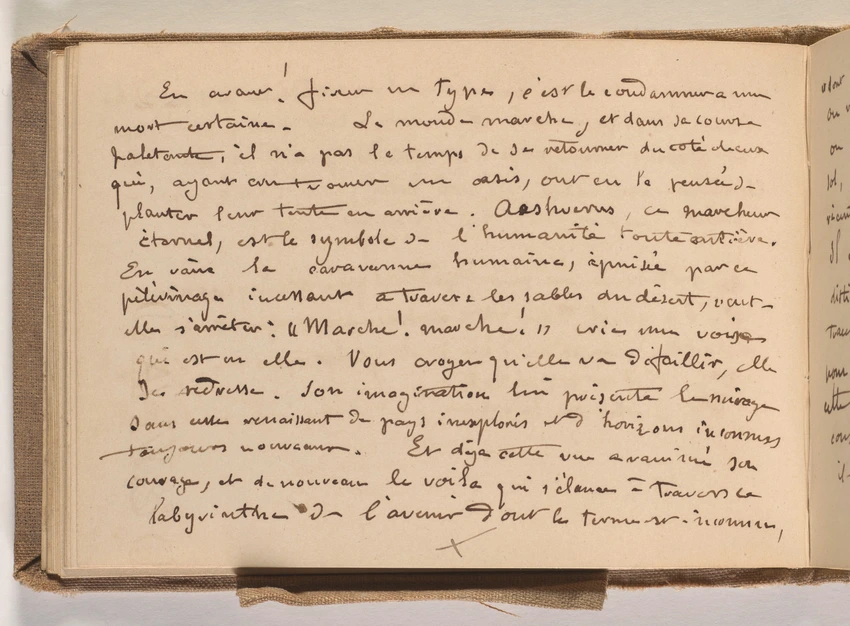 En avant! fixer un type, c'est le condamner a une
mort certaine. Le monde marche, et dans sa course
haletante, il n'a pas le temps de se retourner du coté de ceux
qui, ayant cru trouver un oasis, ont eu la pensée de
planter leur tente en arrière. Aashverus, ce marcheur
éternel, est le symbole de l'humanité toute entière.
En vain la caravanne humaine, épuisée par ce
pélérinage incessant a travers les sables du désert, veut-
elle s'arrêter: "Marche! marche!" crie une voix
qui est en elle. Vous croyez qu'elle va défaillir, elle
se redresse. Son imagination lui présente le mirage
sans cesse renaissant de pays inexplorés et d'horizons inconnus
toujours nouveaux. Et déja cette vue a ranimé son
courage, et de nouveau le voila qui s'élance à travers ce
labyrinthe de l'avenir dont le terme est inconnu,